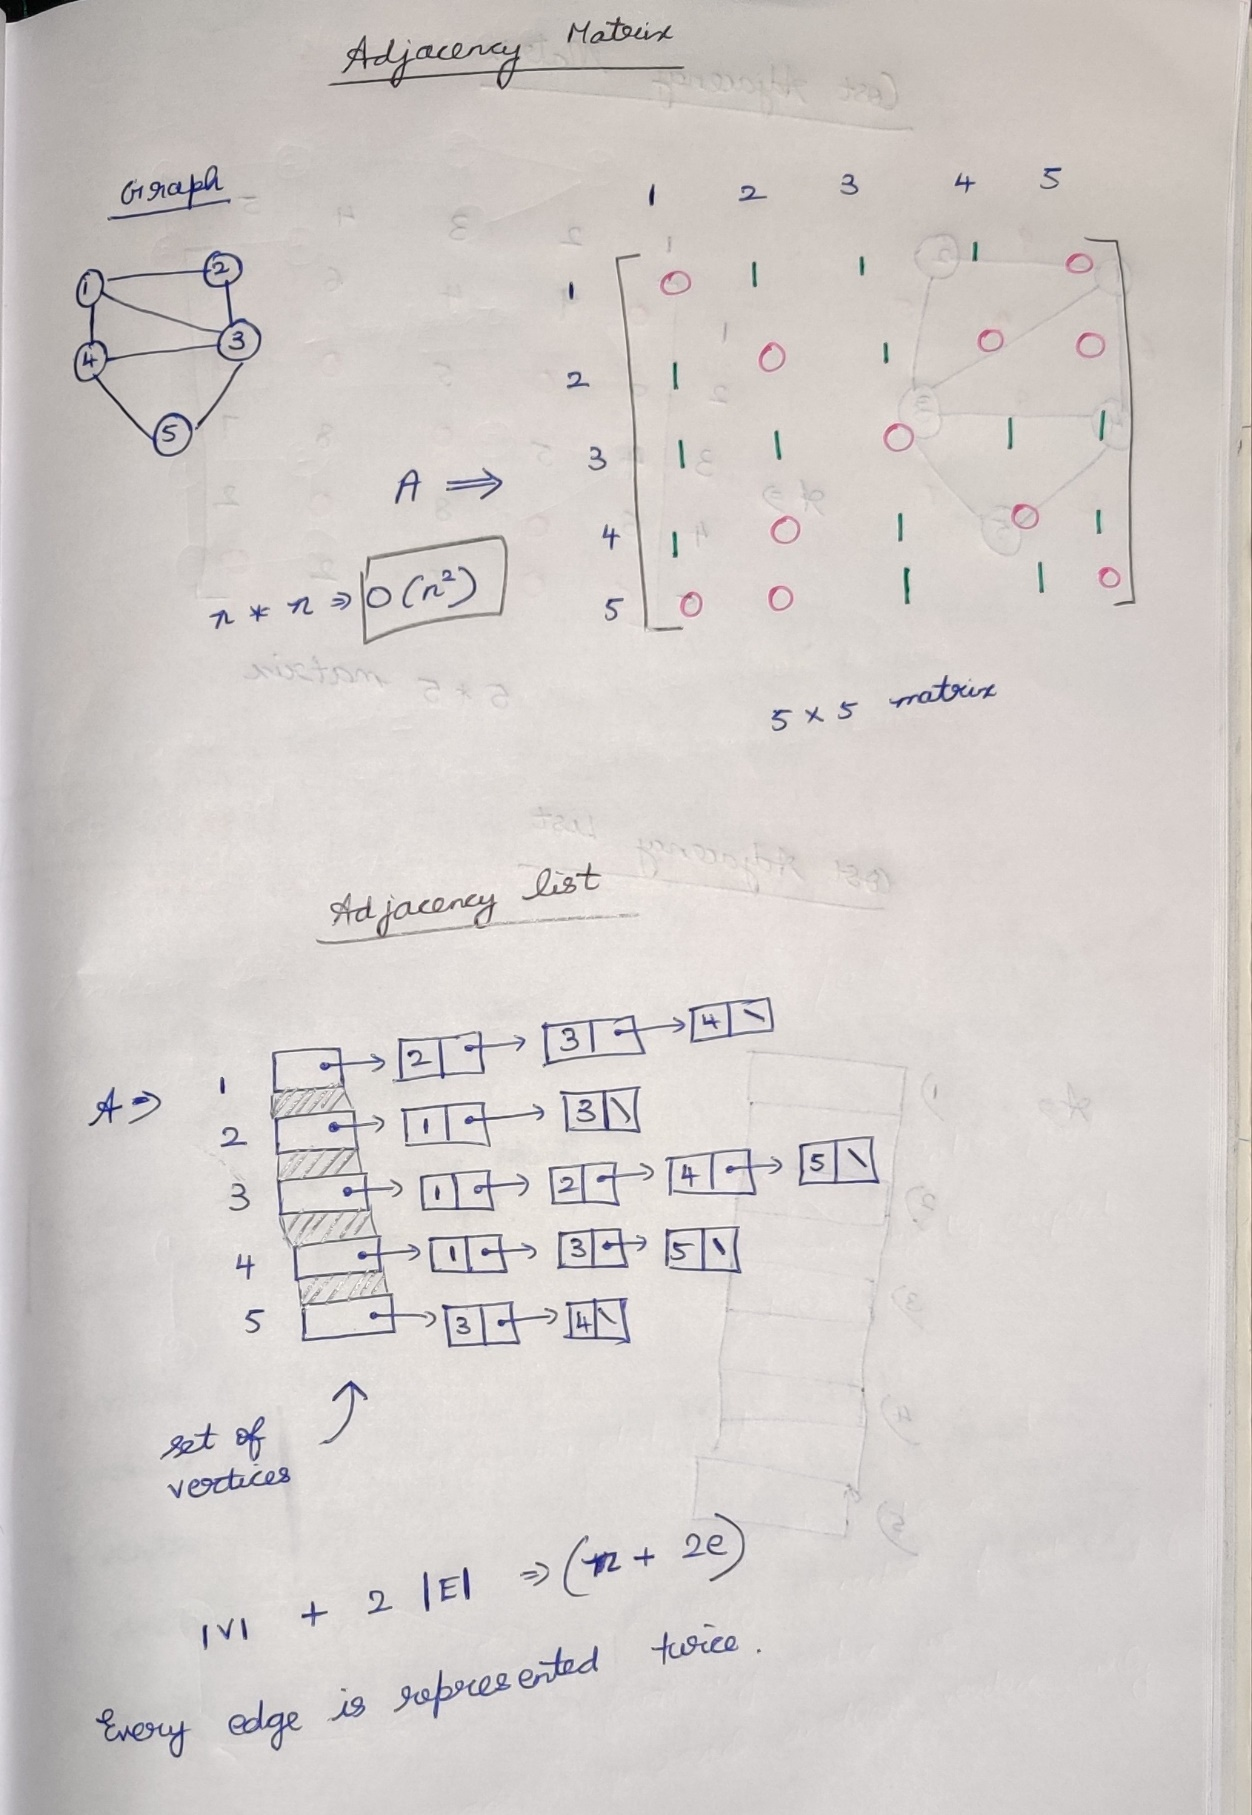 Adjacency Matrix
Graph
1 2 3 4 5
1 2 3 4 5
1 0 1 1 1 0
2 1 0 1 0 0
3 1 1 0 1 1
4 1 0 1 0 1
5 0 0 1 1 0
A ⇒
n * n ⇒ O(n²)
5 x 5 matrix
Adjacency list
A ⇒
1 → 2 → 3 → 4 \
2 → 1 → 3 \
3 → 1 → 2 → 4 → 5 \
4 → 1 → 3 → 5 \
5 → 3 → 4 \
set of
vertices
|V| + 2 |E| ⇒ (n + 2e)
Every edge is represented twice.